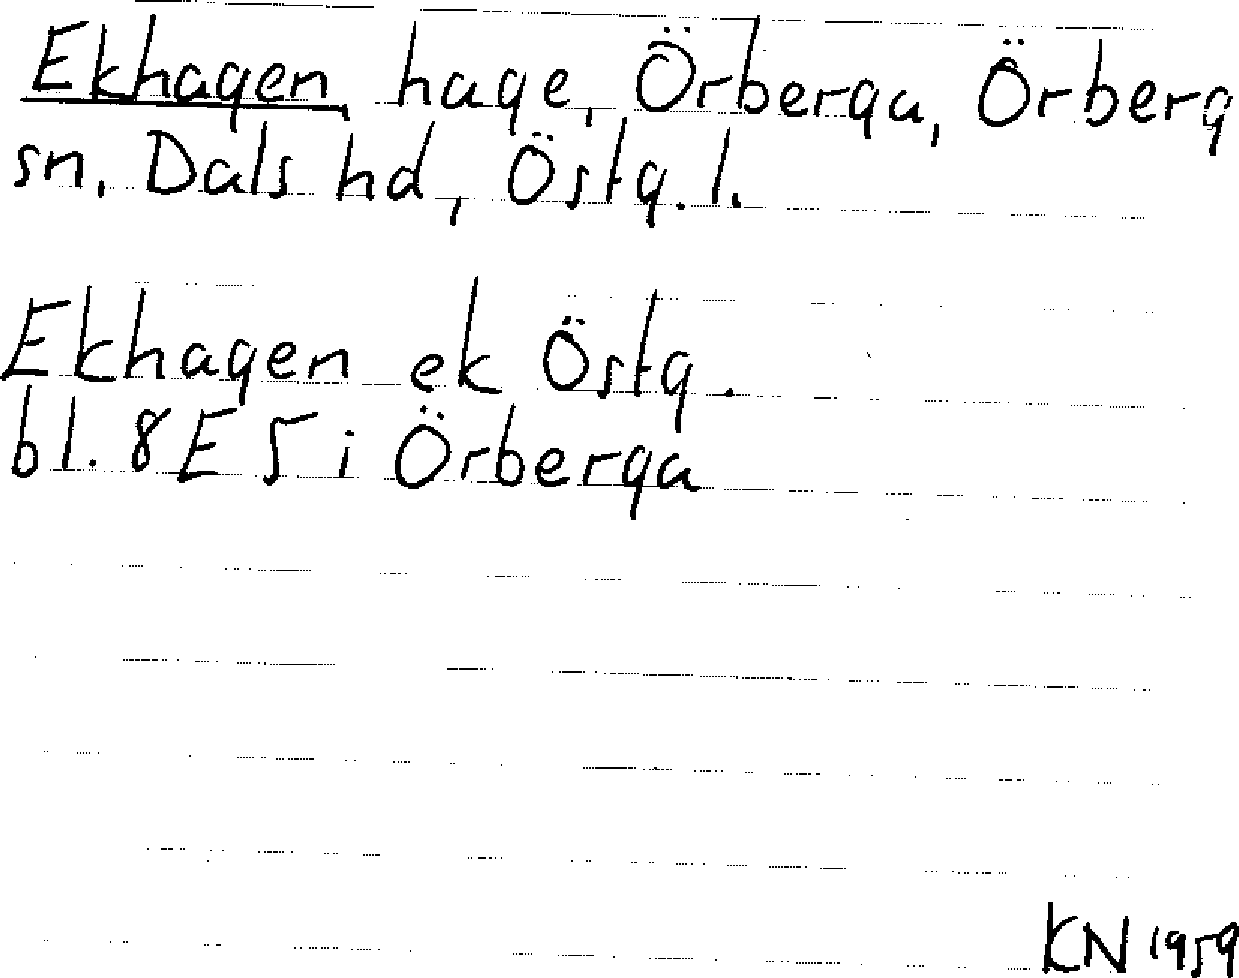 Ekhagen, hage, Örberga, Örberg
sn, Dals hd, Östg. l.
Ekhagen ek Östg.
bl. 8E 5 i Örberga
KN 1959